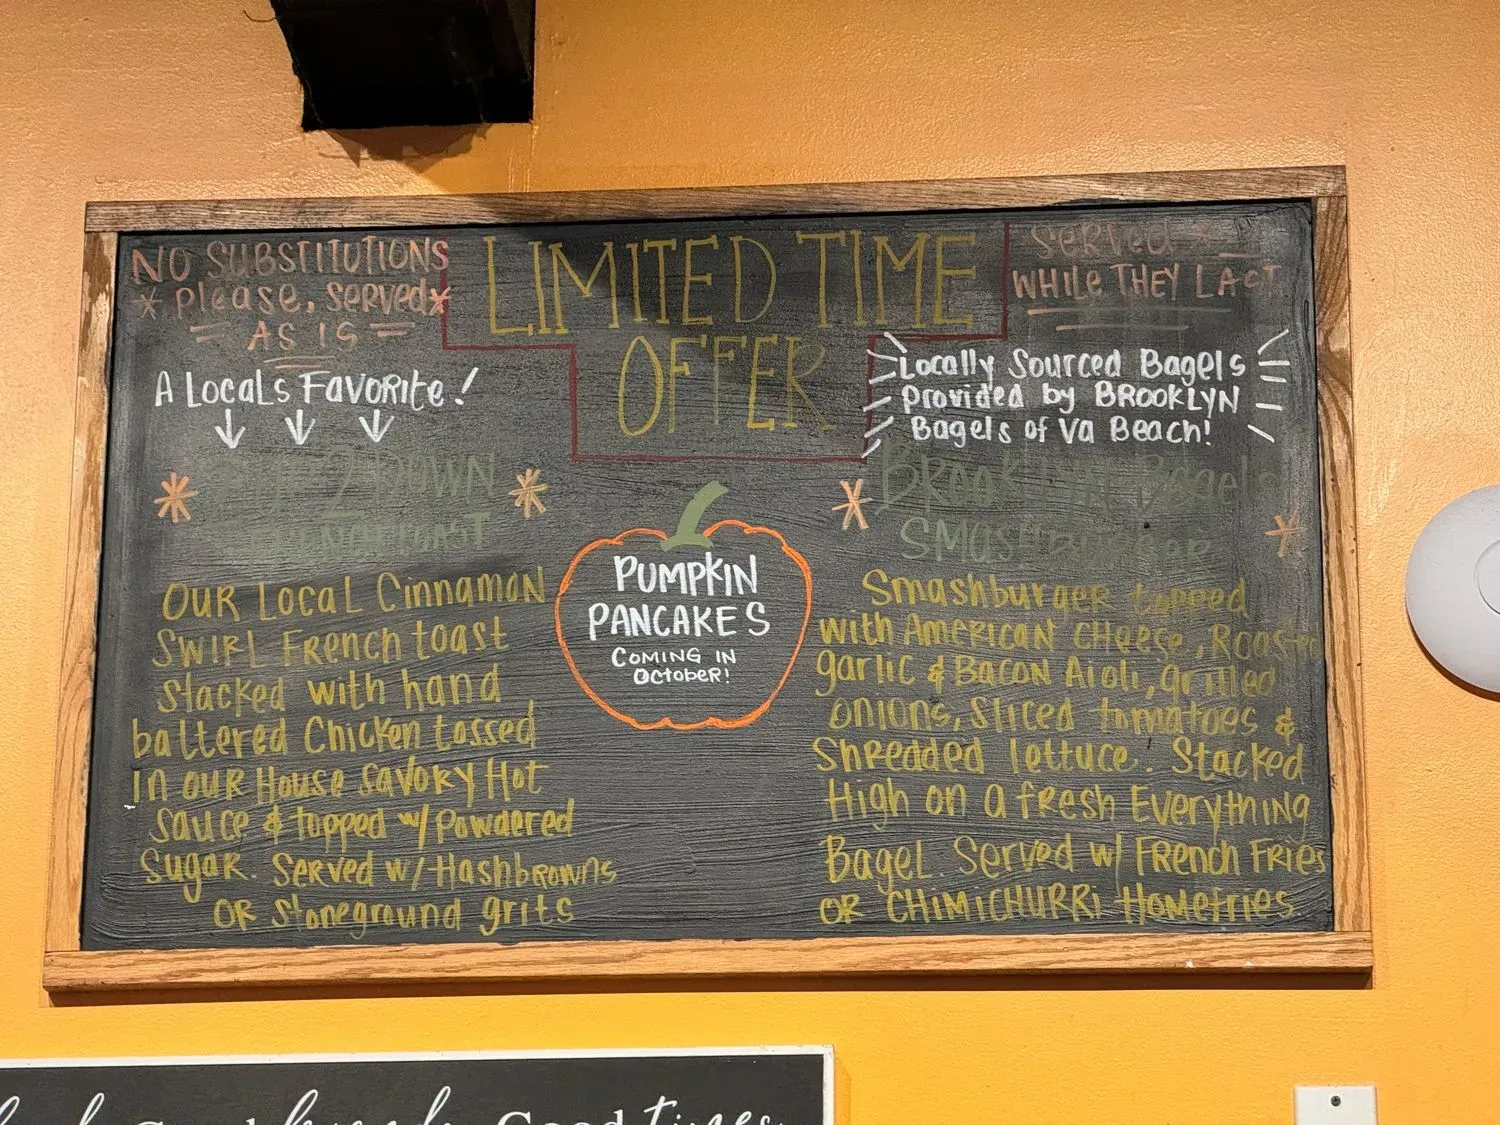 NO SUBSTITUTIONS
* Please, Served *
AS IS
A Locals Favorite!
LIMITED TIME
OFFER
Served *
WHILE THEY LAST
Locally Sourced Bagels
Provided by BROOKLYN
Bagels of Va Beach!
* UP 2 DOWN *
FRENCH TOAST
OUR Local Cinnamon
Swirl French toast
stacked with hand
battered Chicken tossed
in our House Savory Hot
Sauce & topped w/ Powdered
Sugar. Served w/ Hashbrowns
OR Stoneground grits
PUMPKIN
PANCAKES
COMING IN
October!
* Brooklyn Bagels
SMASHBURGER *
Smashburger topped
with AMERICAN CHeese, Roasted
garlic & Bacon Aioli, grilled
onions, Sliced tomatoes &
Shredded lettuce. Stacked
High on a fresh Everything
Bagel. Served w/ French Fries
OR CHIMICHURRi Homefries.
Good times